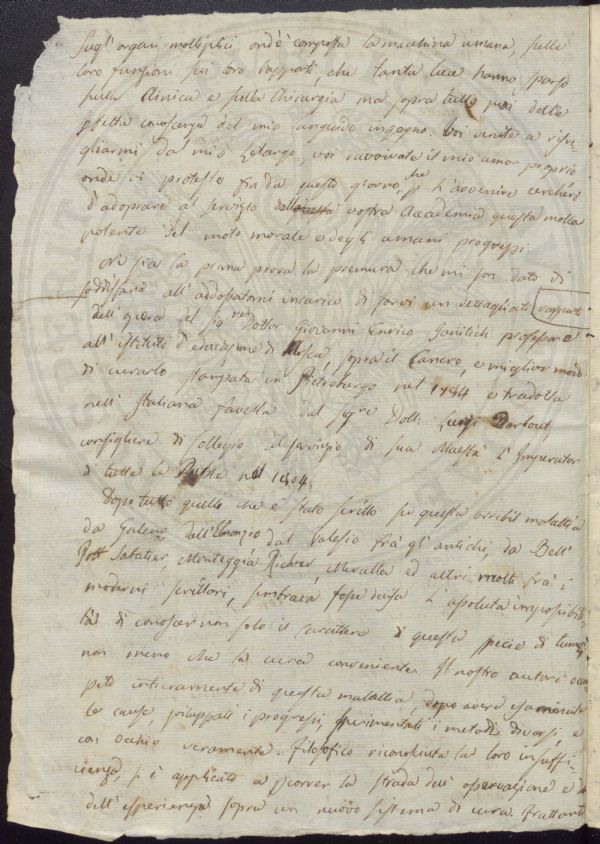 sugl'organi moltiplici ond'è composta la macchina umana, sulle
loro funzioni sui loro rapporti, che tanta luce hanno sparso
sulla Clinica e sulla Chirurgia ma sopra tutto poi della
conoscenza del mio languido ingegno. Voi venite a risve-
gliarmi da mio Letargo, voi ravvivate il mio amor proprio
onde vi protesto fin da questo giorno, che p. l'avvenire cercherò
d'adoprare al servizio vostra Accademia questa molla
potente del moto morale e degli umani progressi.
Ne sia la prima prova la premura che mi son dato di
soddisfare all'addossatomi incarico di farvi un dettagliato rapporto
dell'opera del Sig.re Dottor Giovanni Enrico Janitsch professore
all'Istituto d'educazione di Mosca, sopra il Cancro, e miglior modo
di curarlo stampata in Pietroburgo nel 1784 e tradotta
nell'Italiana favella dal Sig.re Dott. Luigi
consigliere di Collegio al servigio di sua Maestà l'Imperator
di tutte le Russie nel 1804.
Dopo tutto quello che è stato scritto su questa terribil malattia
da Galeno, dal Valesio frà gl'antichi, da Bell
Pott Sabatier, Monteggia Richter, ed altri molti frà i
moderni scrittori, sembrava fosse decisa l'assoluta impossibili-
tà di conoscer non solo il carattere di questa specie di tumori
non meno che la cura conveniente. Il nostro autore occu
pato intieramente di questa malattia, dopo avere esaminate
le cause, sviluppati i progressi, sperimentati i metodi diversi, e
con occhio veramente filosofico riconosciuta la loro insuffi-
cienza si è applicato a scorrer la strada dell'osservazione e
dell'esperienza sopra un nuovo sistema di cura. Frattanto